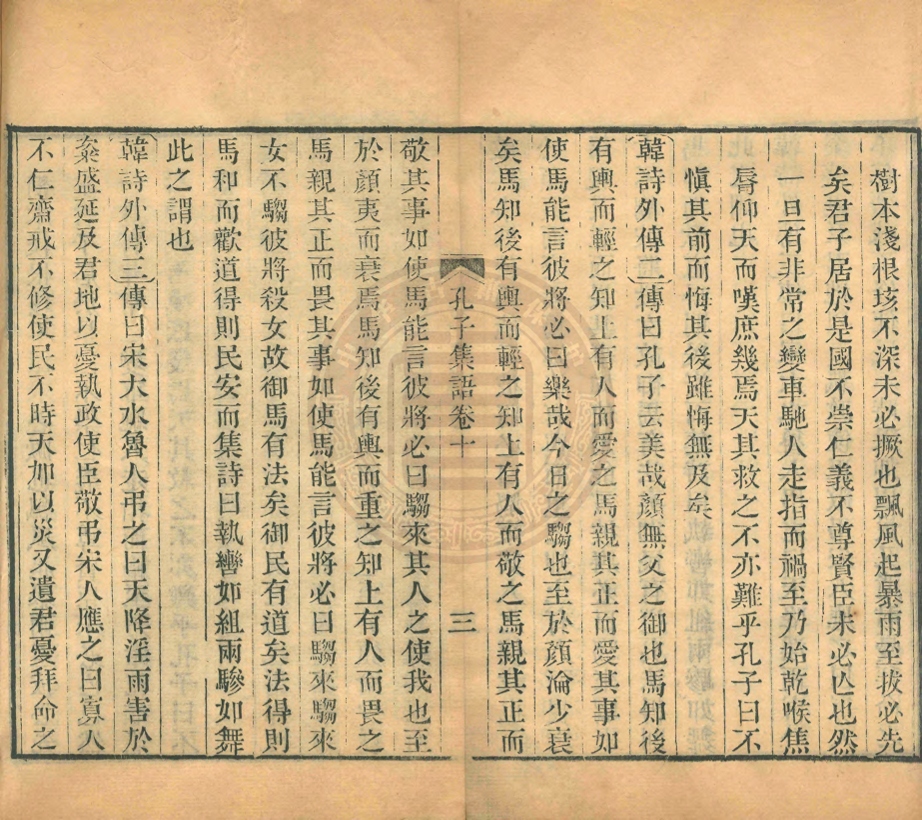 樹本淺根垓不深未必撅也飄風起暴雨至拔必先
矣君子居於是國不崇仁義不尊賢臣未必亾也然
一旦有非常之變車馳人走指而禍至乃始乾喉焦
脣仰天而嘆庶幾焉天其救之不亦難乎孔子曰不
愼其前而悔其後雖悔無及矣
韓詩外傳二傳曰孔子云美哉顏無父之御也馬知後
有輿而輕之知上有人而愛之馬親其正而愛其事如
使馬能言彼將必曰樂哉今日之騶也至於顏淪少衰
矣馬知後有輿而輕之知上有人而敬之馬親其正而
孔子集語卷十
三
敬其事如使馬能言彼將必曰騶來其人之使我也至
於顏夷而衰焉馬知後有輿而重之知上有人而畏之
馬親其正而畏其事如使馬能言彼將必曰騶來騶來
女不騶彼將殺女故御馬有法矣御民有道矣法得則
馬和而歡道得則民安而集詩曰執轡如組兩驂如舞
此之謂也
韓詩外傳三傳曰宋大水魯人弔之曰天降淫雨害於
粢盛延及君地以憂執政使臣敬弔宋人應之曰寡人
不仁齋戒不修使民不時天加以災又遺君憂拜命之